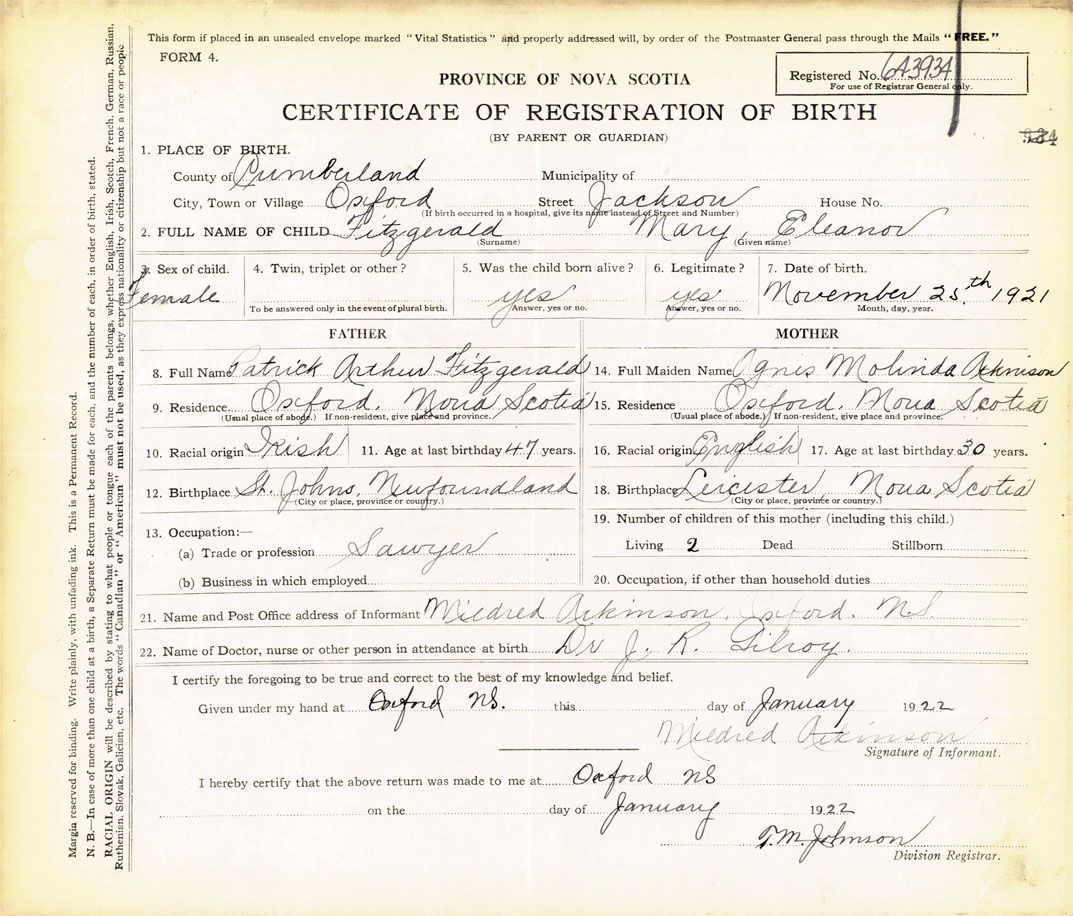 This form if placed in an unsealed envelope marked "Vital Statistics" and properly addressed will, by order of the Postmaster General pass through the Mails "FREE."
FORM 4.
Registered No. 643934
For use of Registrar General only.
PROVINCE OF NOVA SCOTIA
CERTIFICATE OF REGISTRATION OF BIRTH
(BY PARENT OR GUARDIAN)
1. PLACE OF BIRTH.
County of Cumberland Municipality of
City, Town or Village Oxford Street Jackson House No.
(If birth occurred in a hospital, give its name instead of Street and Number)
2. FULL NAME OF CHILD Fitzgerald Mary, Eleanor
(Surname) (Given name)
3. Sex of child. 4. Twin, triplet or other? 5. Was the child born alive? 6. Legitimate? 7. Date of birth.
Female yes yes November 25.th 1921
To be answered only in the event of plural birth. Answer, yes or no. Answer, yes or no. Month, day, year.
FATHER MOTHER
8. Full Name Patrick Arthur Fitzgerald 14. Full Maiden Name Agnes Molinda Atkinson
9. Residence Oxford. Nova Scotia 15. Residence Oxford. Nova Scotia
(Usual place of abode.) If non-resident, give place and province. (Usual place of abode.) If non-resident, give place and province.
10. Racial origin Irish 11. Age at last birthday 47 years. 16. Racial origin English 17. Age at last birthday 30 years.
12. Birthplace St. Johns, Newfoundland 18. Birthplace Leicester, Nova Scotia
(City or place, province or country.) (City or place, province or country.)
13. Occupation:— 19. Number of children of this mother (including this child.)
(a) Trade or profession Sawyer Living 2 Dead Stillborn
(b) Business in which employed 20. Occupation, if other than household duties
21. Name and Post Office address of Informant Mildred Atkinson, Oxford. N.S.
22. Name of Doctor, nurse or other person in attendance at birth Dr J. R. Gilroy.
I certify the foregoing to be true and correct to the best of my knowledge and belief.
Given under my hand at Oxford NS. this day of January 1922
Mildred Atkinson
Signature of Informant.
I hereby certify that the above return was made to me at Oxford NS
on the day of January 1922
T.M. Johnson
Division Registrar.
Margin reserved for binding. Write plainly, with unfading ink. This is a Permanent Record.
N. B.—In case of more than one child at a birth, a Separate Return must be made for each, and the number of each, in order of birth, stated.
RACIAL ORIGIN will be described by stating to what people or tongue each of the parents belongs, whether English, Irish, Scotch, French, German, Russian,
Ruthenian, Slovak, Galician, etc. The words "Canadian" or "American" must not be used, as they express nationality or citizenship but not a race or people